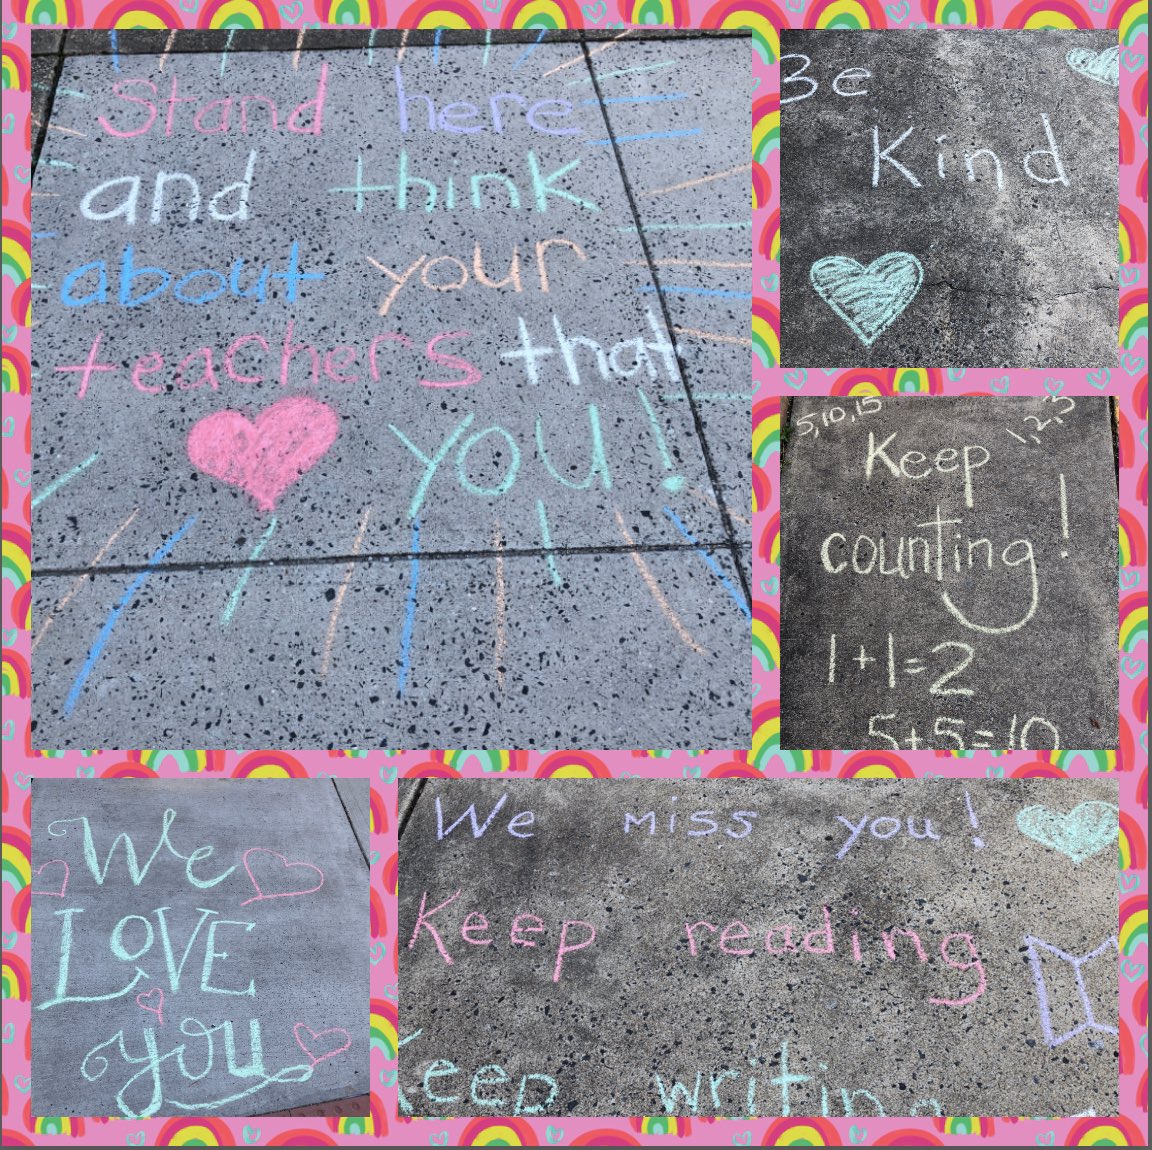 Stand here
and think
about your
teachers that
you!
Be
Kind
5,10,15
1,2,3
Keep
counting!
1+1=2
5+5=10
We
LOVE
you
We miss you!
Keep reading
Keep writing